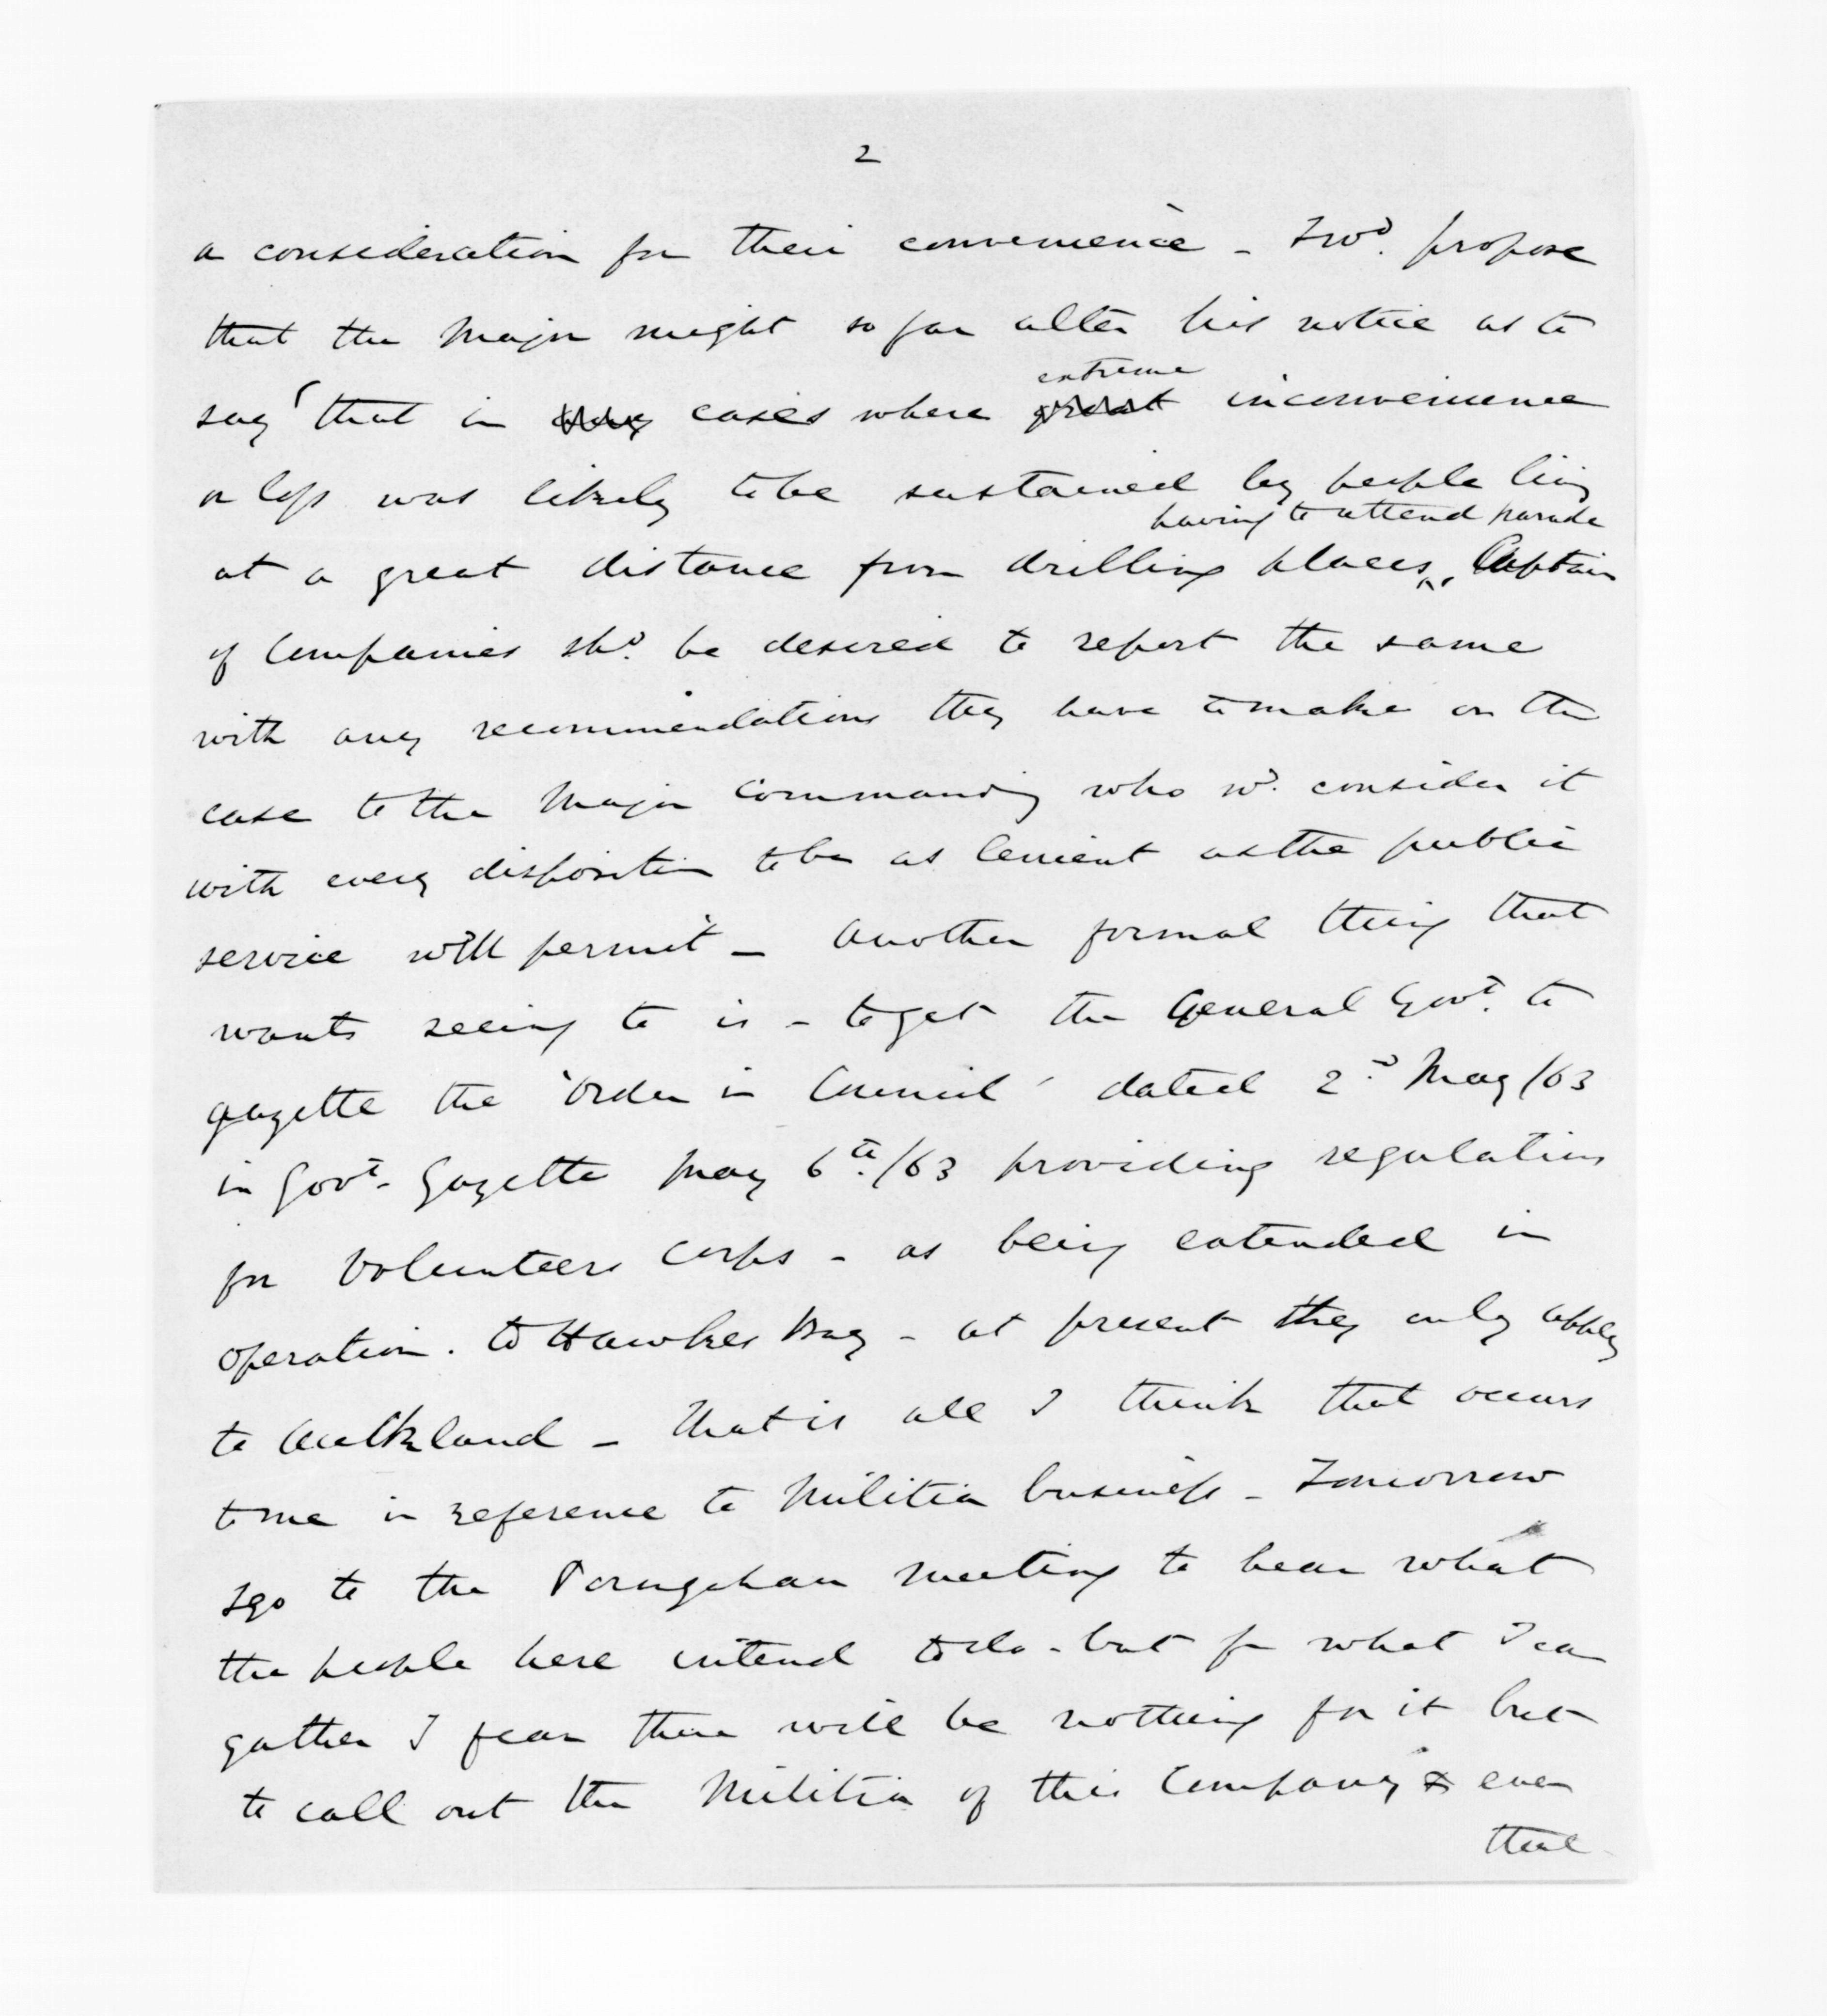 2
a consideration for their convenience - I wd. propose
that the Major might so far alter his notice as to
say 'that in cases where great extreme inconvenience
or loss was likely to be sustained by people living
having to attend parade
at a great distance from drilling places, Captain
of Companies shd. be desired to report the same
with any recommendations they have to make on the
case to the Major Commanding who wd. consider it
with every disposition to be as lenient as the public
service will permit - Another formal thing that
wants seeing to is - to get the General Govt. to
gazette the 'Order in Council' dated 2d May/63
in Govt. Gazette May 6th./63 providing regulations
for Volunteers Corps - as being extended in
operation. to Hawkes Bay - at present they only apply
to Auckland - That is all I think that occurs
to me in reference to Militia business - Tomorrow
I go to the Porangahau meeting to hear what
the people here intend to do - but fr what I can
gather I fear there will be nothing for it but
to call out the Militia of this Company & even